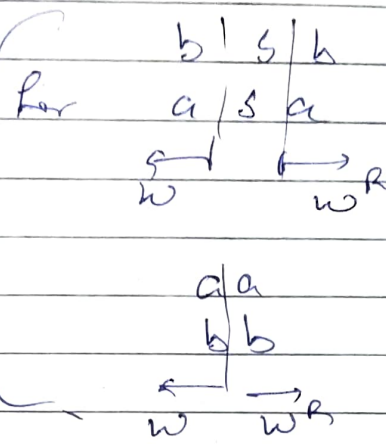 b | S | b
for a | S | a
w w^R
a | a
b | b
w w^R